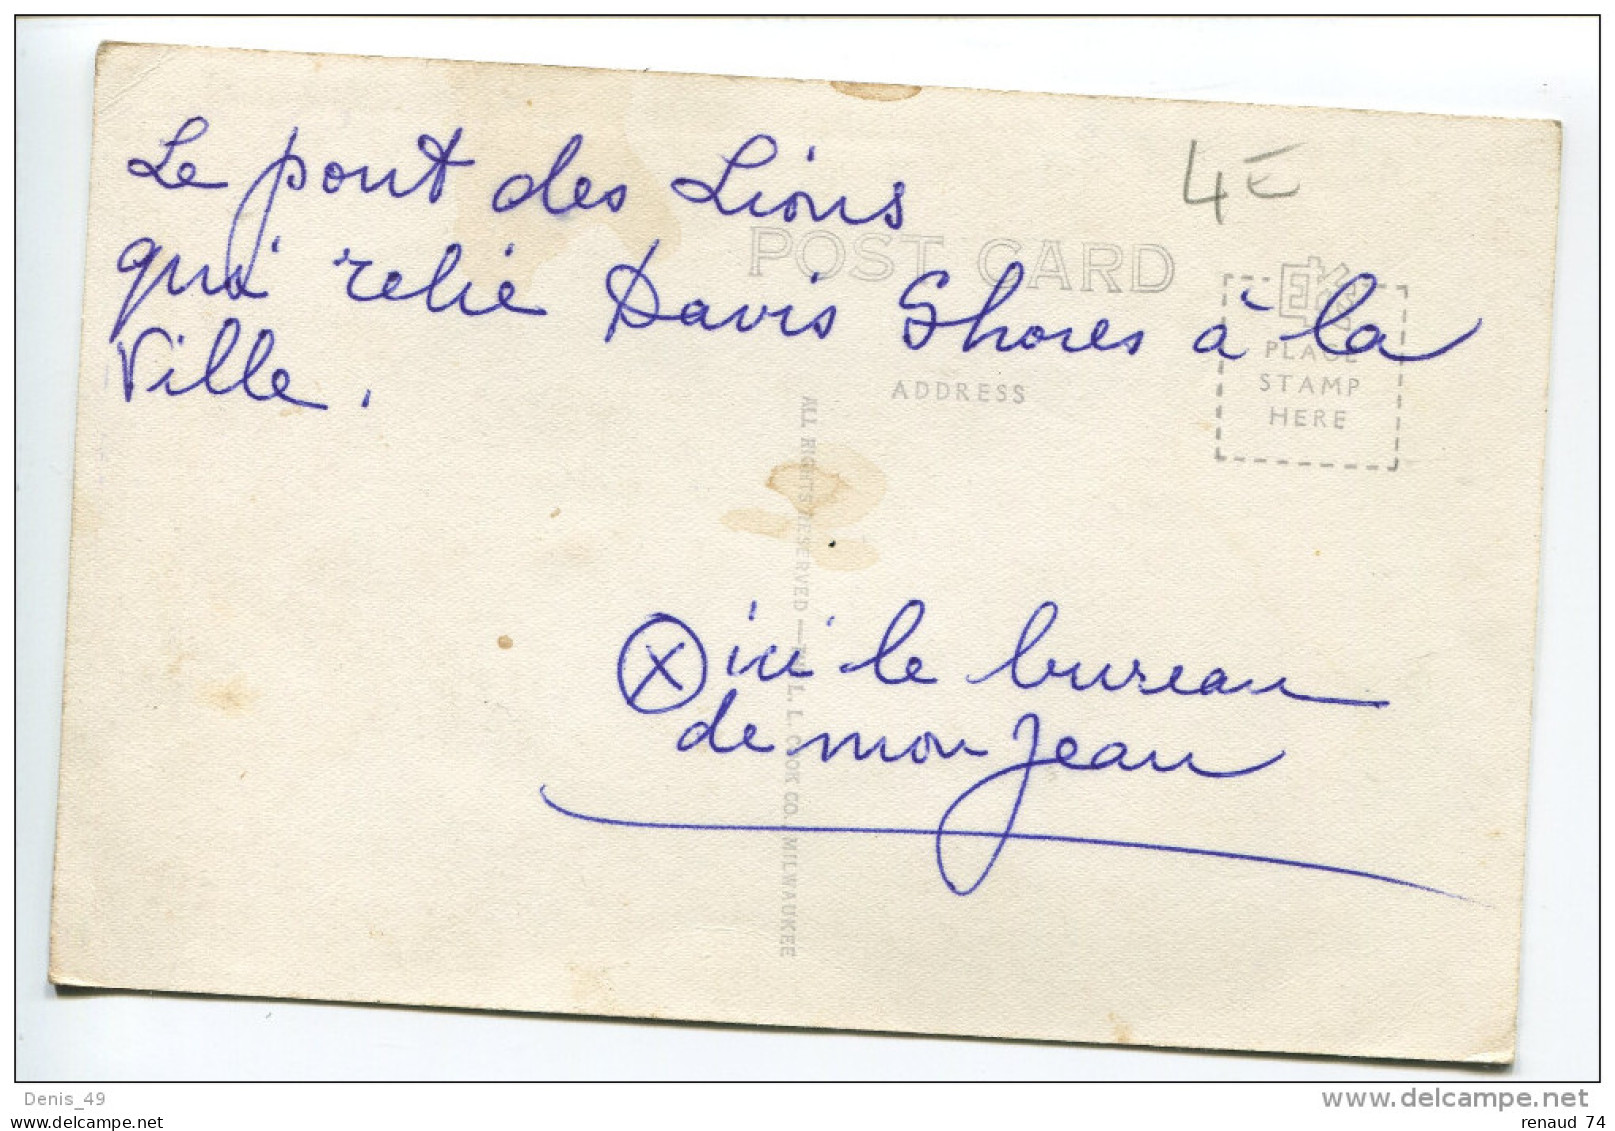 Le pont des Lions
4E
qui relie Davis Shores à la
Ville.
POST CARD
EKC
PLACE
STAMP
HERE
ADDRESS
ALL RIGHTS RESERVED — THE L. L. COOK CO., MILWAUKEE
X ici le bureau
de mon Jean
Denis_49
www.delcampe.net
renaud 74